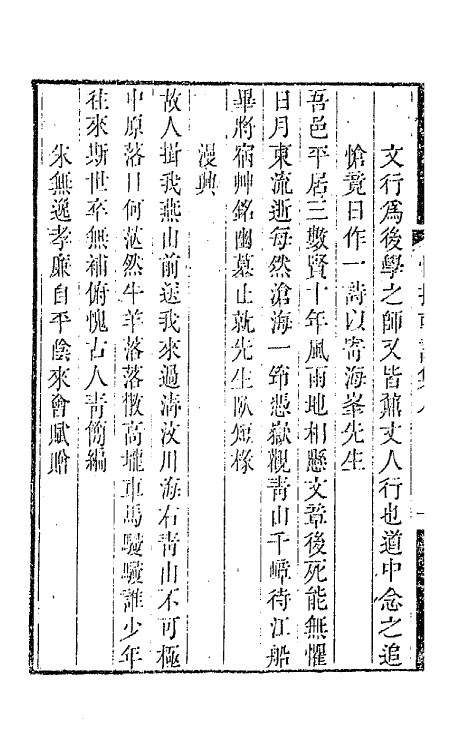 文行為後學之師又皆鼐丈人行也道中念之追
愴竟日作一詩以寄海峯先生
吾邑平居三數賢十年風雨地相懸文章後死能無懼
日月東流逝每然滄海一笻悲嶽觀靑山千嶂待江船
畢將宿艸銘幽墓止就先生臥短椽
漫興
故人揖我燕山前送我來過淸汶川海右靑山不可極
中原落日何茫然牛羊落落散高壠車馬駸駸誰少年
往來斯世卒無補俯愧古人靑簡編
朱無逸孝廉自平陰來會賦贈